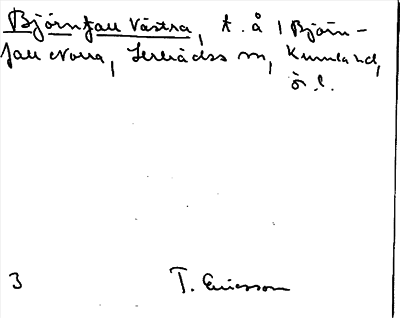 Björnfall Västra, t. å Björn-
fall Norra, m, Kumland,
ö. l.
3 T. Ericsson